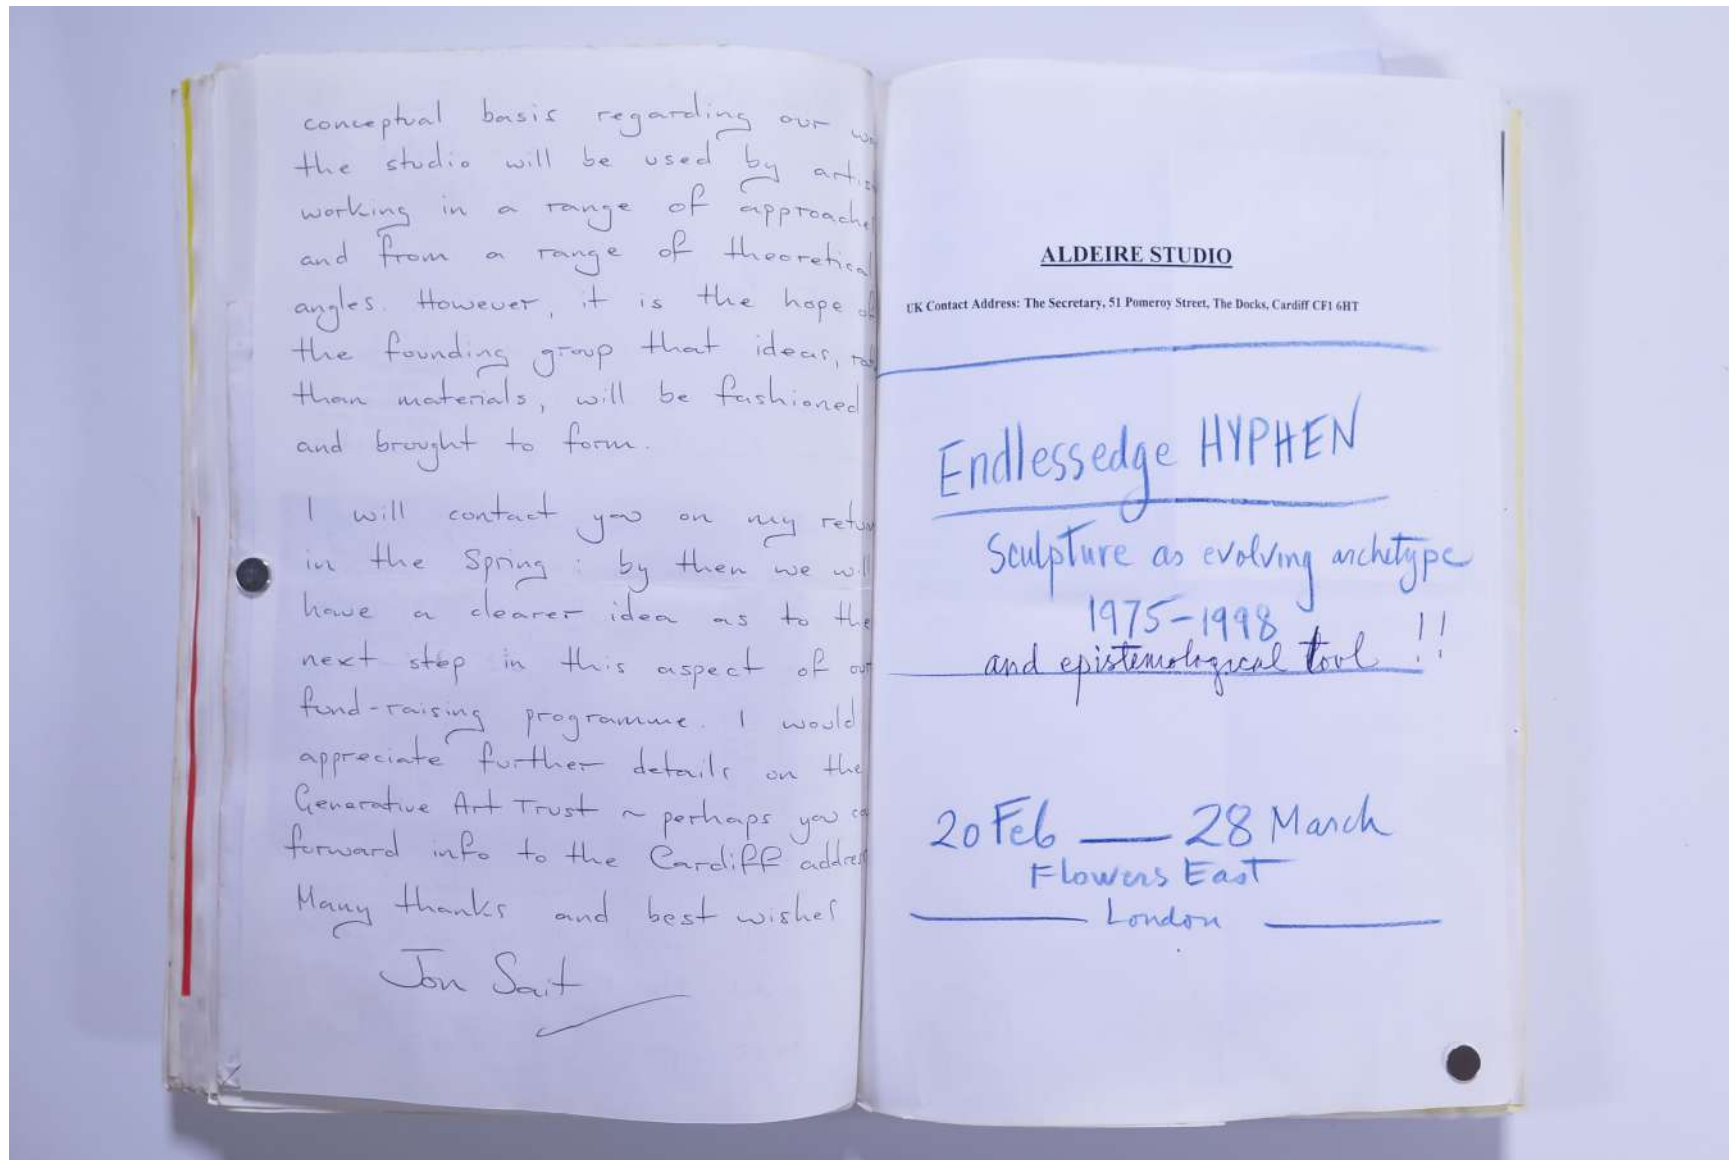 conceptual basis regarding our
the studio will be used by
working in a range of
and from a range of theoretical
angles. However, it is the hope
the founding group that ideas,
than materials, will be fashioned
and brought to form.
I will contact you on my
in the Spring : by then we
have a clearer idea as to the
next step in this aspect of
fund-raising programme. I would
appreciate further details on the
Generative Art Trust ~ perhaps you
forward info to the Cardiff
Many thanks and best wishes
Jon Sait
ALDEIRE STUDIO
UK Contact Address: The Secretary, 51 Pomeroy Street, The Docks, Cardiff CF1 6HT
Endlessedge HYPHEN
Sculpture as evolving archetype
1975-1998
and epistemological tool !!
20 Feb — 28 March
Flowers East
London